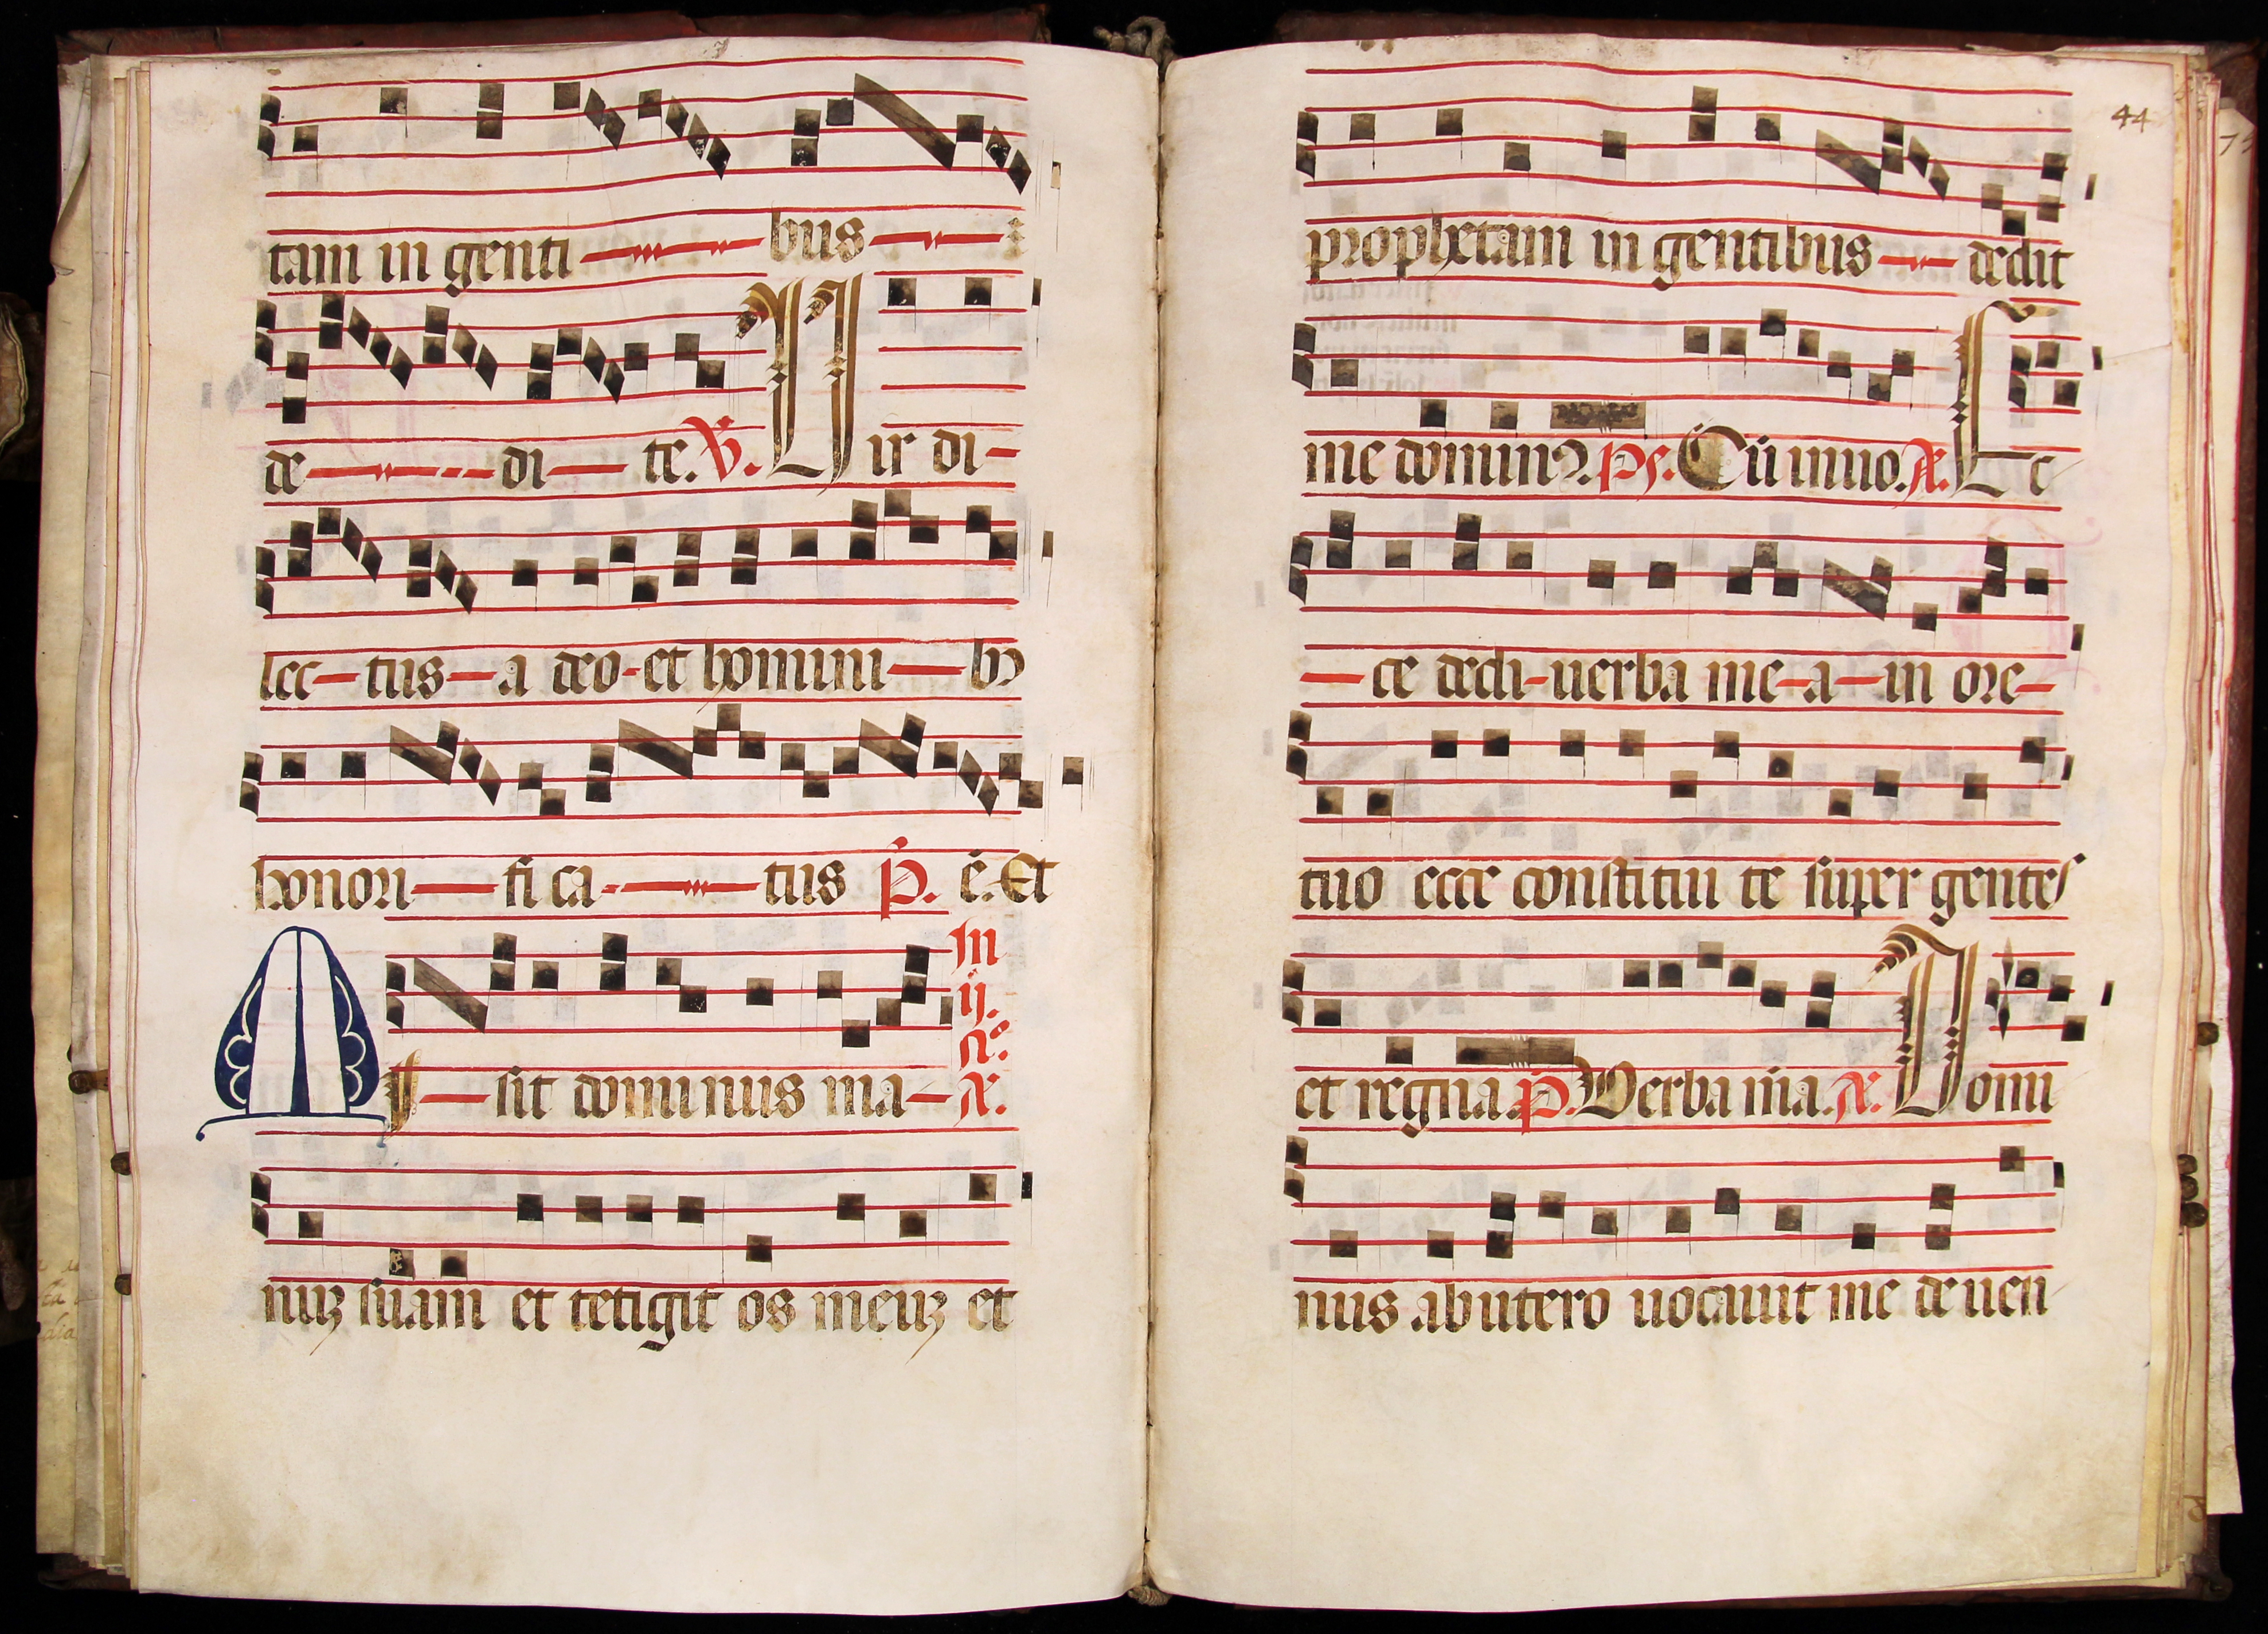 tam in genti bus
de di te. V. Vir di-
lec-tus-a deo-et homini-bꝰ
honori-fi ca-tus P. e. Et
In
ij.
nº.
Misit dominus ma- A.
nuꝫ suam et tetigit os meuꝫ et
44
prophetam in gentibus dedit
me dominꝰ. Ps. Cū inuo. A. Ec
-ce dedi-uerba me-a-in ore-
tuo ecce constitui te super gentes
et regna. P. Verba m̄a. A. Domi
nus ab utero uocauit me de uen